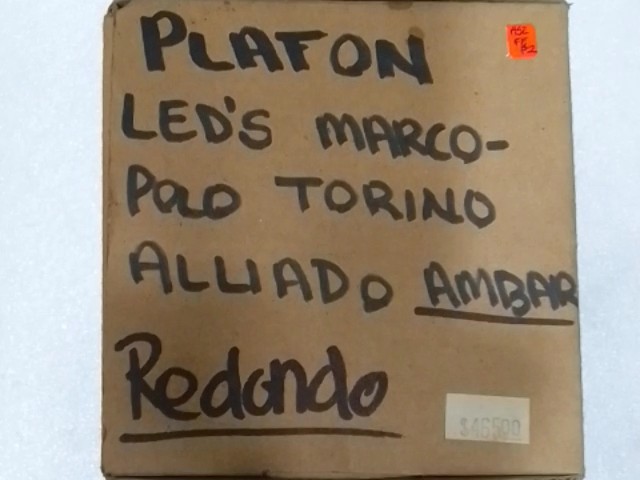 PLAFON
LED'S MARCO-
POLO TORINO
ALLIADO AMBAR
Redondo